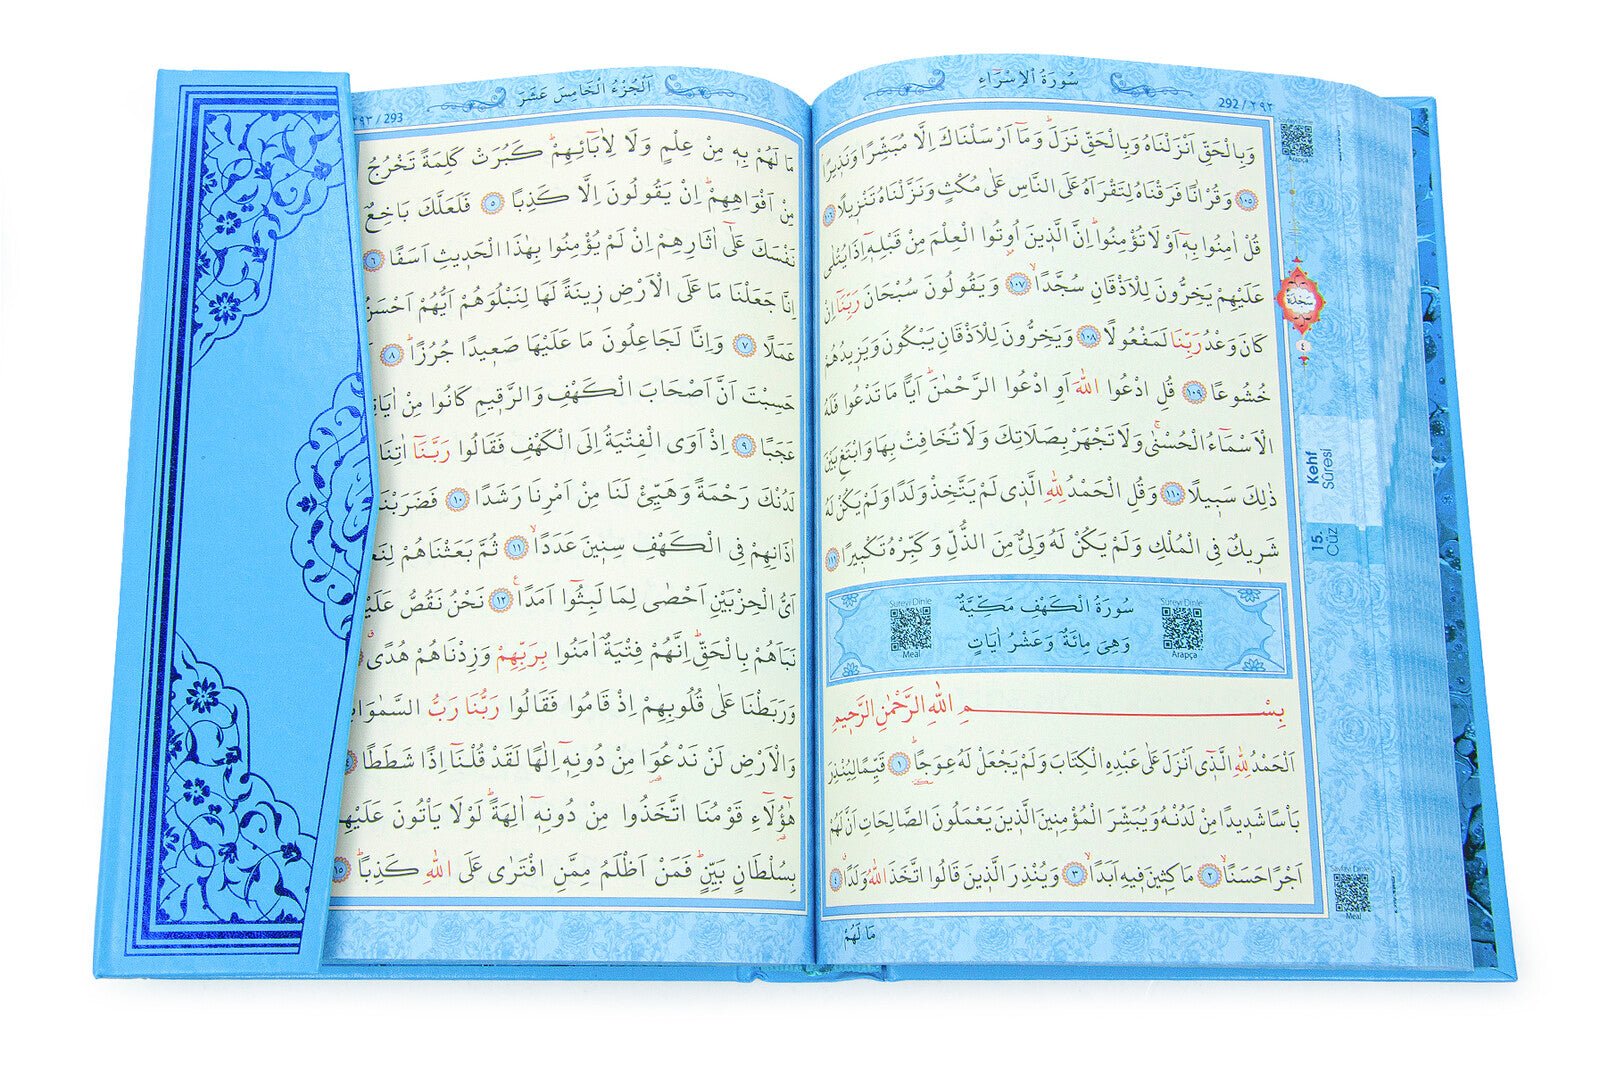 سُورَةُ الْاِسْرَاءِ
292 / ٢٩٢
وَبِالْحَقِّ اَنْزَلْنَاهُ وَبِالْحَقِّ نَزَلَ وَمَا اَرْسَلْنَاكَ اِلَّا مُبَشِّرًا وَنَذِيرًا
١٠٥ وَقُرْاٰنًا فَرَقْنَاهُ لِتَقْرَاَهُ عَلَى النَّاسِ عَلٰى مُكْثٍ وَنَزَّلْنَاهُ تَنْزِيلًا ١٠٦
قُلْ اٰمِنُوا بِهٖ اَوْ لَا تُؤْمِنُوا اِنَّ الَّذِينَ اُوتُوا الْعِلْمَ مِنْ قَبْلِهٖ اِذَا يُتْلٰى
عَلَيْهِمْ يَخِرُّونَ لِلْاَذْقَانِ سُجَّدًا ١٠٧ وَيَقُولُونَ سُبْحَانَ رَبِّنَا اِنْ
كَانَ وَعْدُ رَبِّنَا لَمَفْعُولًا ١٠٨ وَيَخِرُّونَ لِلْاَذْقَانِ يَبْكُونَ وَيَزِيدُهُمْ
خُشُوعًا ١٠٩ قُلِ ادْعُوا اللّٰهَ اَوِ ادْعُوا الرَّحْمٰنَ اَيًّا مَا تَدْعُوا فَلَهُ
الْاَسْمَاءُ الْحُسْنٰى وَلَا تَجْهَرْ بِصَلَاتِكَ وَلَا تُخَافِتْ بِهَا وَابْتَغِ بَيْنَ
ذٰلِكَ سَبِيلًا ١١٠ وَقُلِ الْحَمْدُ لِلّٰهِ الَّذِي لَمْ يَتَّخِذْ وَلَدًا وَلَمْ يَكُنْ لَهُ
شَرِيكٌ فِي الْمُلْكِ وَلَمْ يَكُنْ لَهُ وَلِيٌّ مِنَ الذُّلِّ وَكَبِّرْهُ تَكْبِيرًا ١١١
سُورَةُ الْكَهْفِ مَكِّيَّةٌ
وَهِيَ مِائَةٌ وَعَشْرُ اٰيَاتٍ
Sureyi Dinle
Arapça
Sureyi Dinle
Meal
بِسْمِ اللّٰهِ الرَّحْمٰنِ الرَّحِيمِ
اَلْحَمْدُ لِلّٰهِ الَّذِي اَنْزَلَ عَلٰى عَبْدِهِ الْكِتَابَ وَلَمْ يَجْعَلْ لَهُ عِوَجًا ١ قَيِّمًا لِيُنْذِرَ
بَاْسًا شَدِيدًا مِنْ لَدُنْهُ وَيُبَشِّرَ الْمُؤْمِنِينَ الَّذِينَ يَعْمَلُونَ الصَّالِحَاتِ اَنَّ لَهُمْ
اَجْرًا حَسَنًا ٢ مَاكِثِينَ فِيهِ اَبَدًا ٣ وَيُنْذِرَ الَّذِينَ قَالُوا اتَّخَذَ اللّٰهُ وَلَدًا ٤
مَا لَهُمْ
Sayfayı Dinle
Arapça
سَجْدَة
٤
Kehf
Sûresi
15.
Cüz
Sayfayı Dinle
Meal
اَلْجُزْءُ الْخَامِسَ عَشَرَ
٢٩٣ / 293
مَا لَهُمْ بِهٖ مِنْ عِلْمٍ وَلَا لِاٰبَائِهِمْ كَبُرَتْ كَلِمَةً تَخْرُجُ
مِنْ اَفْوَاهِهِمْ اِنْ يَقُولُونَ اِلَّا كَذِبًا ٥ فَلَعَلَّكَ بَاخِعٌ
نَفْسَكَ عَلٰى اٰثَارِهِمْ اِنْ لَمْ يُؤْمِنُوا بِهٰذَا الْحَدِيثِ اَسَفًا ٦
اِنَّا جَعَلْنَا مَا عَلَى الْاَرْضِ زِينَةً لَهَا لِنَبْلُوَهُمْ اَيُّهُمْ اَحْسَنُ
عَمَلًا ٧ وَاِنَّا لَجَاعِلُونَ مَا عَلَيْهَا صَعِيدًا جُرُزًا ٨
حَسِبْتَ اَنَّ اَصْحَابَ الْكَهْفِ وَالرَّقِيمِ كَانُوا مِنْ
عَجَبًا ٩ اِذْ اَوَى الْفِتْيَةُ اِلَى الْكَهْفِ فَقَالُوا رَبَّنَا اٰتِنَا
لَدُنْكَ رَحْمَةً وَهَيِّئْ لَنَا مِنْ اَمْرِنَا رَشَدًا ١٠ فَضَرَبْنَا
اٰذَانِهِمْ فِي الْكَهْفِ سِنِينَ عَدَدًا ١١ ثُمَّ بَعَثْنَاهُمْ
اَيُّ الْحِزْبَيْنِ اَحْصٰى لِمَا لَبِثُوا اَمَدًا ١٢ نَحْنُ نَقُصُّ
نَبَاَهُمْ بِالْحَقِّ اِنَّهُمْ فِتْيَةٌ اٰمَنُوا بِرَبِّهِمْ وَزِدْنَاهُمْ هُدًى
وَرَبَطْنَا عَلٰى قُلُوبِهِمْ اِذْ قَامُوا فَقَالُوا رَبُّنَا رَبُّ
وَالْاَرْضِ لَنْ نَدْعُوَا مِنْ دُونِهٖ اِلٰهًا لَقَدْ قُلْنَا اِذًا شَطَطًا
هٰؤُلَاءِ قَوْمُنَا اتَّخَذُوا مِنْ دُونِهٖ اٰلِهَةً لَوْلَا يَاْتُونَ
بِسُلْطَانٍ بَيِّنٍ فَمَنْ اَظْلَمُ مِمَّنِ افْتَرٰى عَلَى اللّٰهِ كَذِبًا ١٥